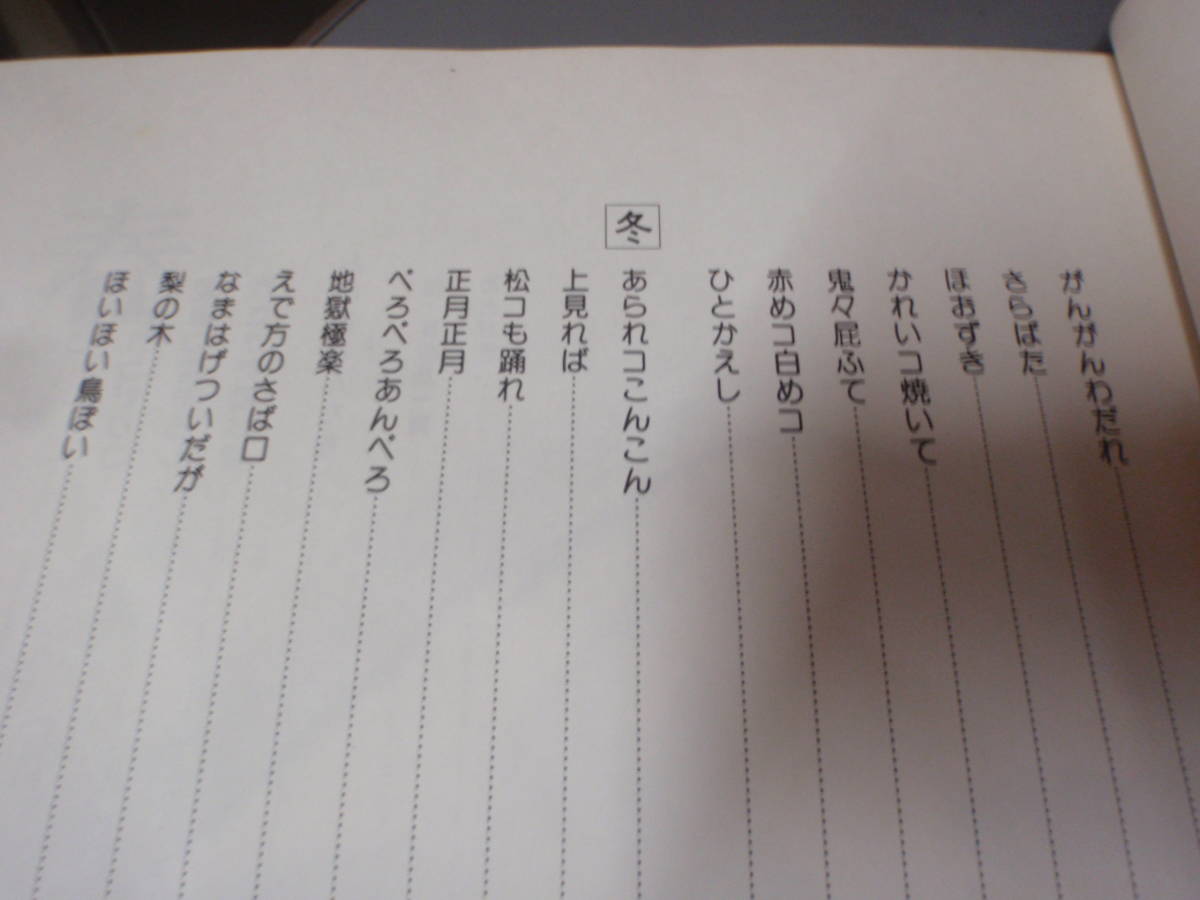 がんがんわだれ
きらばた
ほおずき
かれいコ焼いて
鬼々屁ふて
赤めコ白めコ
ひとかえし
冬
あられコこんこん
上見れば
松コも踊れ
正月正月
べろべろあんべろ
地獄極楽
えで方のさば口
なまはげついだが
梨の木
ほいほい鳥ぼい